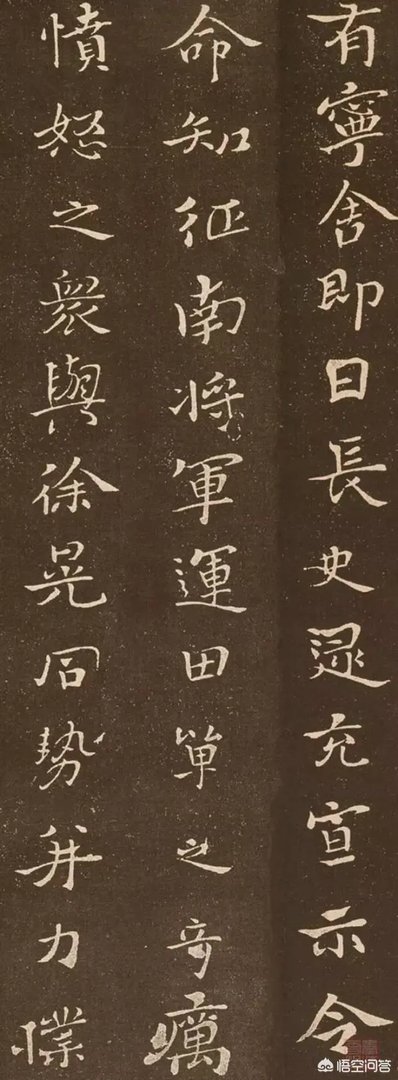 有寧舍即日長史逯充宣示令
命知征南将軍運田單之奇厲
憤怒之衆與徐晃同勢并力撲
悟空问答